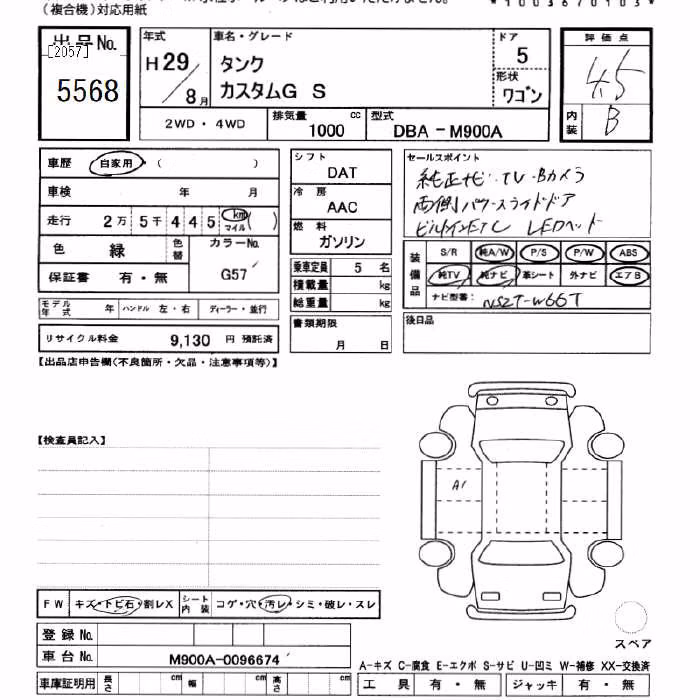 (複合機)対応用紙
出品No.
[2057]
5568
年式 H29/8月
車名・グレード タンク カスタムG S
ドア 5
形状 ワゴン
評価点 4.5
内装 B
2WD・4WD
排気量 1000 cc
型式 DBA-M900A
車歴 自家用 ( )
車検 年 月
走行 2万 5千 4 4 5 km マイル ( )
色 緑 色替 カラーNo. G57
保証書 有・無
モデル年式 年 ハンドル 左・右 ディーラー・並行
リサイクル料金 9,130 円 預託済
シフト DAT
冷房 AAC
燃料 ガソリン
乗車定員 5 名
積載量 kg
総重量 kg
書類期限 月 日
セールスポイント
純正ナビ・TV・Bカメラ
両側パワースライドドア
ビルトインETC LEDヘッド
装備品 S/R 純A/W P/S P/W ABS
純TV 純ナビ 革シート 外ナビ エアB
ナビ型番: NSZT-W66T
後日品
【出品店申告欄(不良箇所・欠品・注意事項等)】
【検査員記入】
A1
FW キズ・トビ石・割レX シート内装 コゲ・穴・汚レ・シミ・破レ・スレ
登録No.
車台No. M900A-0096674
車庫証明用 長さ cm 幅 cm 高さ cm
スペア
A-キズ C-腐食 E-エクボ S-サビ U-凹ミ W-補修 XX-交換済
工具 有・無 ジャッキ 有・無